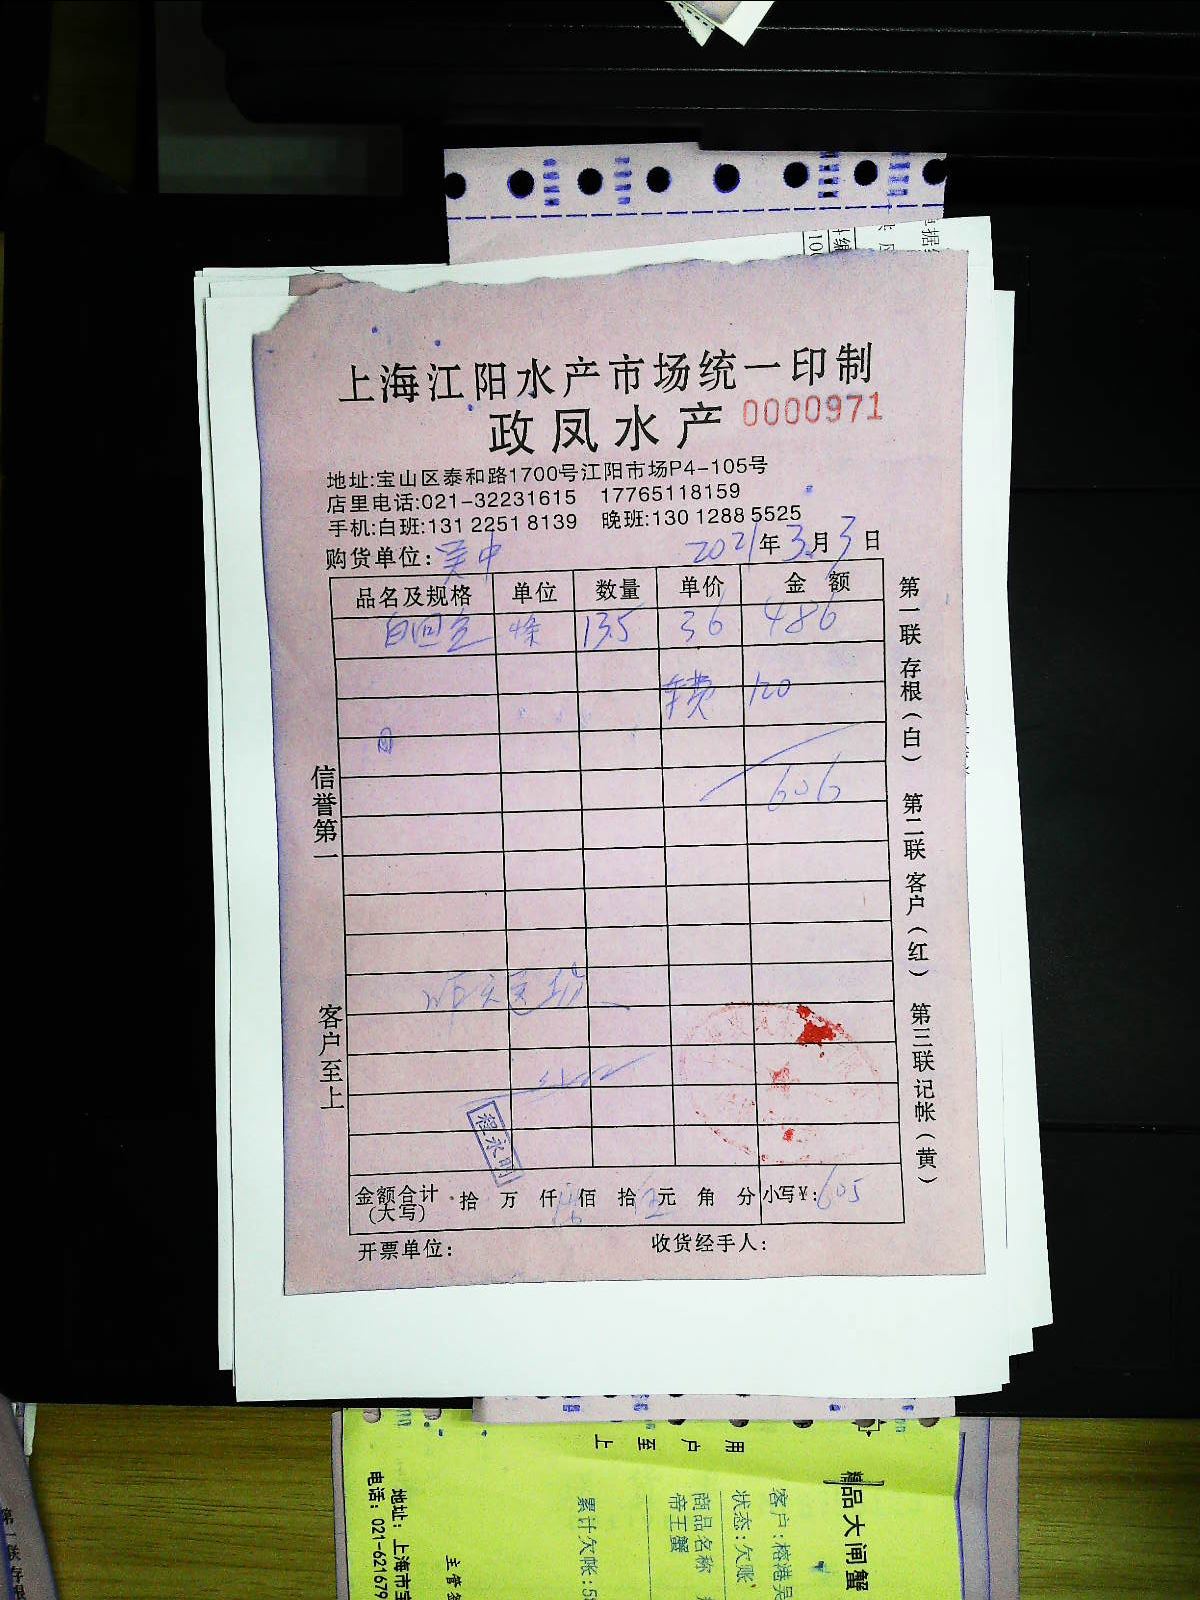 上海江阳水产市场统一印制
政凤水产 0000971
地址:宝山区泰和路1700号江阳市场P4-105号
店里电话:021-32231615 17765118159
手机:白班:131 2251 8139 晚班:130 1288 5525
购货单位: 吴中 2021年3月3日
品名及规格 单位 数量 单价 金额
条 13.5 36 486
车费 120
606
信誉第一
客户至上
程永明
金额合计(大写) 拾 万 仟 佰 拾 元 角 分 小写¥: 605
开票单位: 收货经手人:
第一联存根(白) 第二联客户(红) 第三联记帐(黄)
用户至上
精品大闸蟹
客户:榕港吴
状态:欠账
商品名称
帝王蟹
累计欠帐:5
主管
地址:上海市宝
电话:021-621679